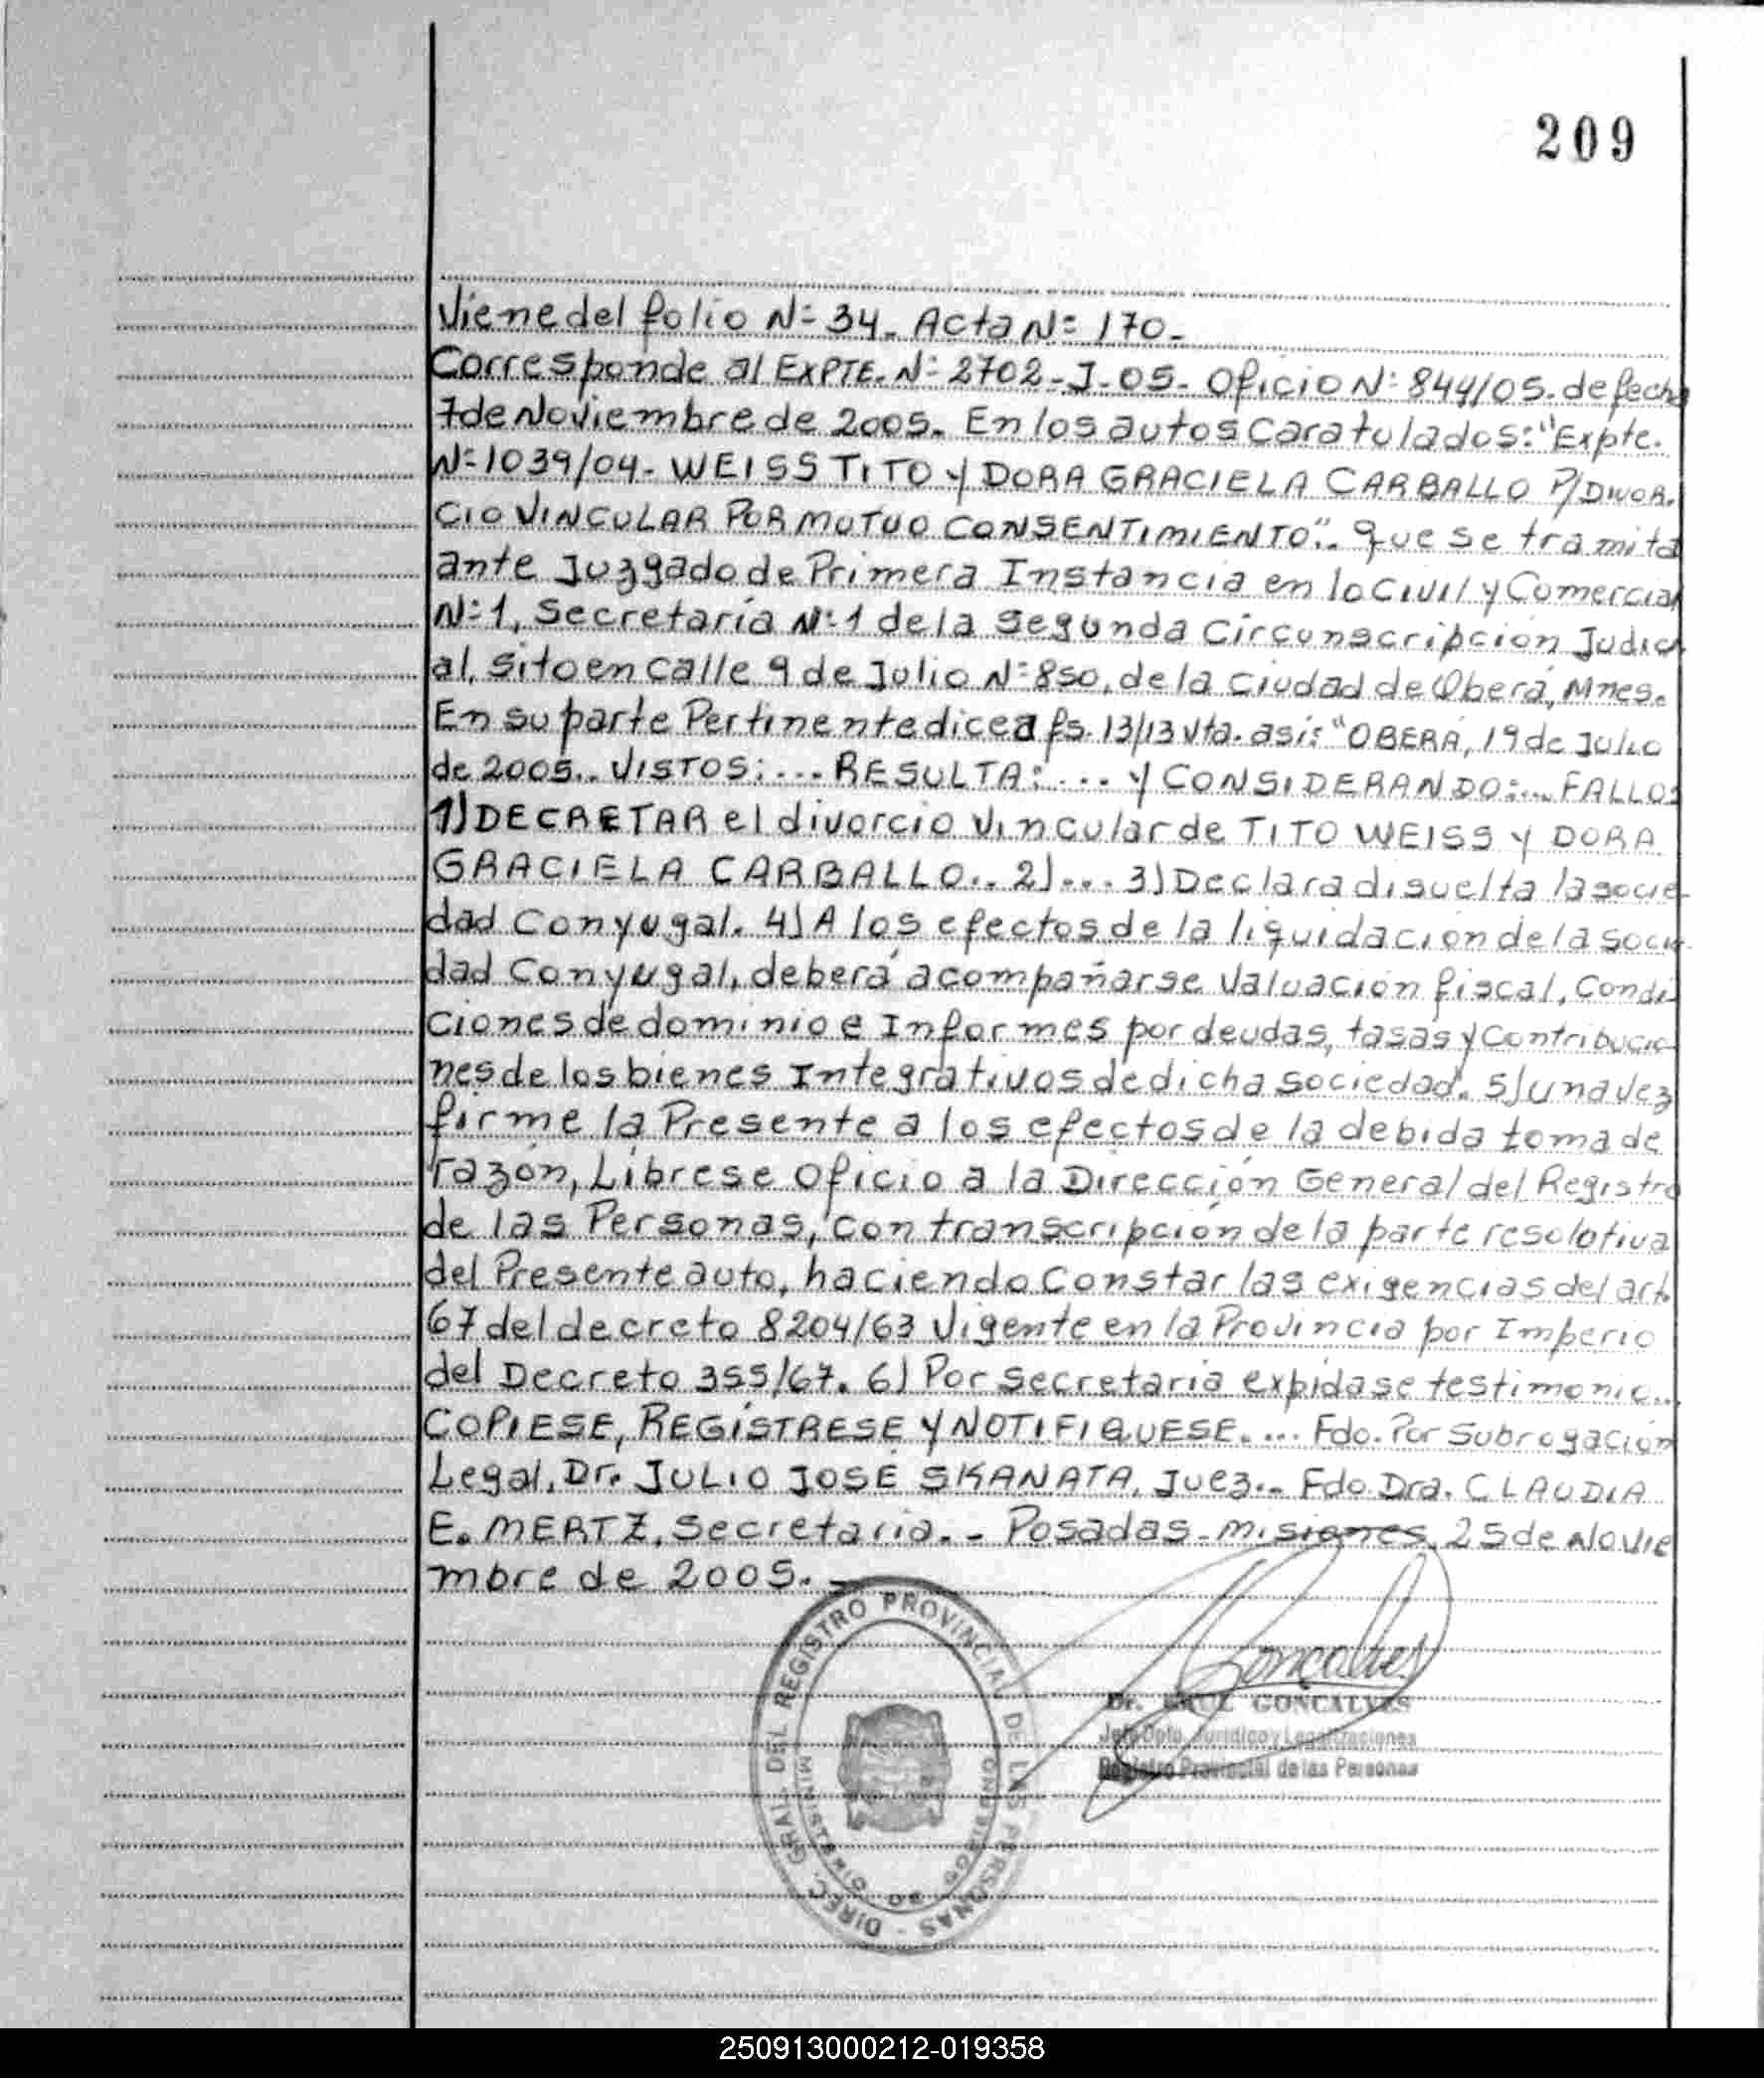 209
Viene del folio N= 34. Acta N= 170.
Corresponde al EXPTE. N= 2702-J-05. Oficio N= 844/05. de fecha
7 de Noviembre de 2005. En los autos Caratulados: "Expte.
N= 1039/04- WEISS TITO y DORA GRACIELA CARBALLO P/DIVOR.
CIO VINCULAR POR MUTUO CONSENTIMIENTO". que se tramita
ante Juzgado de Primera Instancia en lo Civil y Comercial
N= 1, Secretaría N= 1 de la Segunda Circunscripción Judici
al, sito en calle 9 de Julio N= 850, de la Ciudad de Oberá, Mnes.
En su parte Pertinente dice a fs. 13/13 Vta. así: "OBERÁ, 19 de Julio
de 2005.. VISTOS:... RESULTA:.... y CONSIDERANDO:... FALLO:
1) DECRETAR el divorcio Vincular de TITO WEISS y DORA
GRACIELA CARBALLO.. 2)... 3) Declara disuelta la socie
dad Conyugal. 4) A los efectos de la liquidación de la socie
dad Conyugal, deberá acompañarse Valuación fiscal, Condi
ciones de dominio e Informes por deudas, tasas y Contribucio
nes de los bienes Integrativos de dicha sociedad. 5) una vez
firme la Presente a los efectos de la debida toma de
razón, Líbrese Oficio a la Dirección General del Registro
de las Personas, con transcripción de la parte resolutiva
del Presente auto, haciendo Constar las exigencias del art.
67 del decreto 8204/63 Vigente en la Provincia por Imperio
del Decreto 355/67. 6) Por Secretaria expídase testimonio...
COPIESE, REGÍSTRESE Y NOTIFIQUESE.... Fdo. Por Subrogación
Legal, Dr. JULIO JOSE SKANATA, Juez.- Fdo Dra. CLAUDIA
E. MERTZ, Secretaria.- Posadas-Misiones, 25 de Novie
mbre de 2005.-
DIREC. GRAL. DEL REGISTRO PROVINCIAL DE LAS PERSONAS -
MINISTERIO DE GOBIERNO
Goncalves
Dr. GONCALVES
Jefe Dpto. Jurídico y Legalizaciones
Registro Provincial de las Personas
250913000212-019358